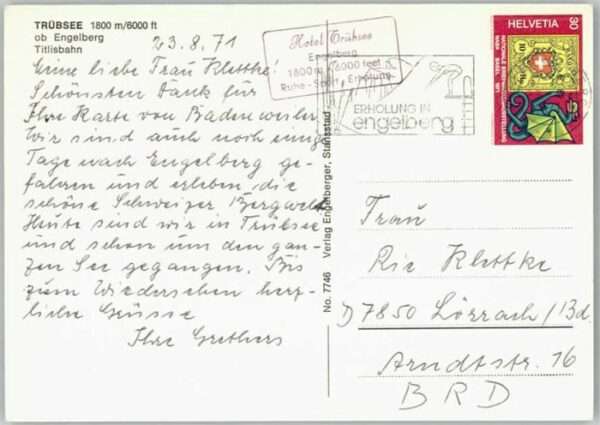 TRÜBSEE 1800 m/6000 ft
ob Engelberg
Titlisbahn
23.8.71
Meine liebe Frau Klettke!
Schönsten Dank für
Ihre Karte von Badenweiler
Wir sind auch noch einige
Tage nach Engelberg ge-
fahren und erleben die
schöne Schweizer Bergwelt
Heute sind wir in Trübsee
und schon um den gan-
zen See gegangen. Bis
zum Wiedersehen herz-
liche Grüsse
Ihre Grethers
Hotel Trübsee
Engelberg
1800 m 6000 feet
Ruhe - Sport - Erholung
ERHOLUNG IN
engelberg
HELVETIA 30
NABA BASEL 1971
No. 7746 Verlag Engelberger, Stansstad
Frau
Rie Klettke
D 7850 Lörrach/Bd.
Arndtstr. 16
BRD